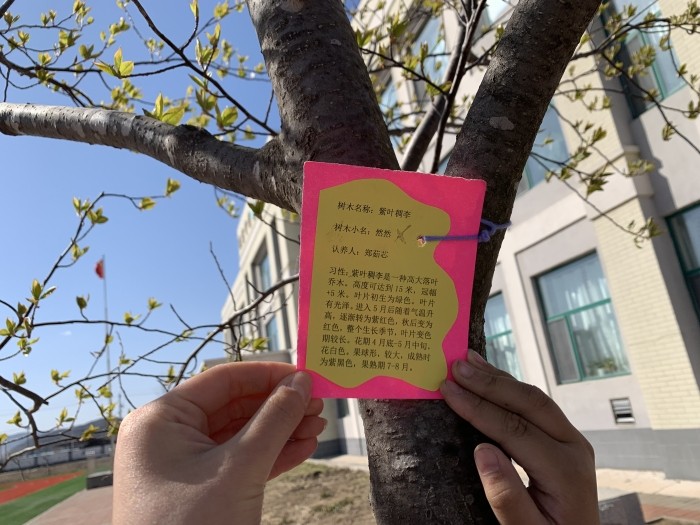 树木名称：紫叶稠李
树木小名：然然
认养人：郑茹芯
习性：紫叶稠李是一种高大落叶
乔木，高度可达到15米，冠幅
+5米。叶片初生为绿色，叶片
有光泽，进入5月后随着气温升
高，逐渐转为紫红色，秋后变为
红色，整个生长季节，叶片变色
期较长。花期4月底-5月中旬，
花白色。果球形，较大，成熟时
为紫黑色，果熟期7-8月。